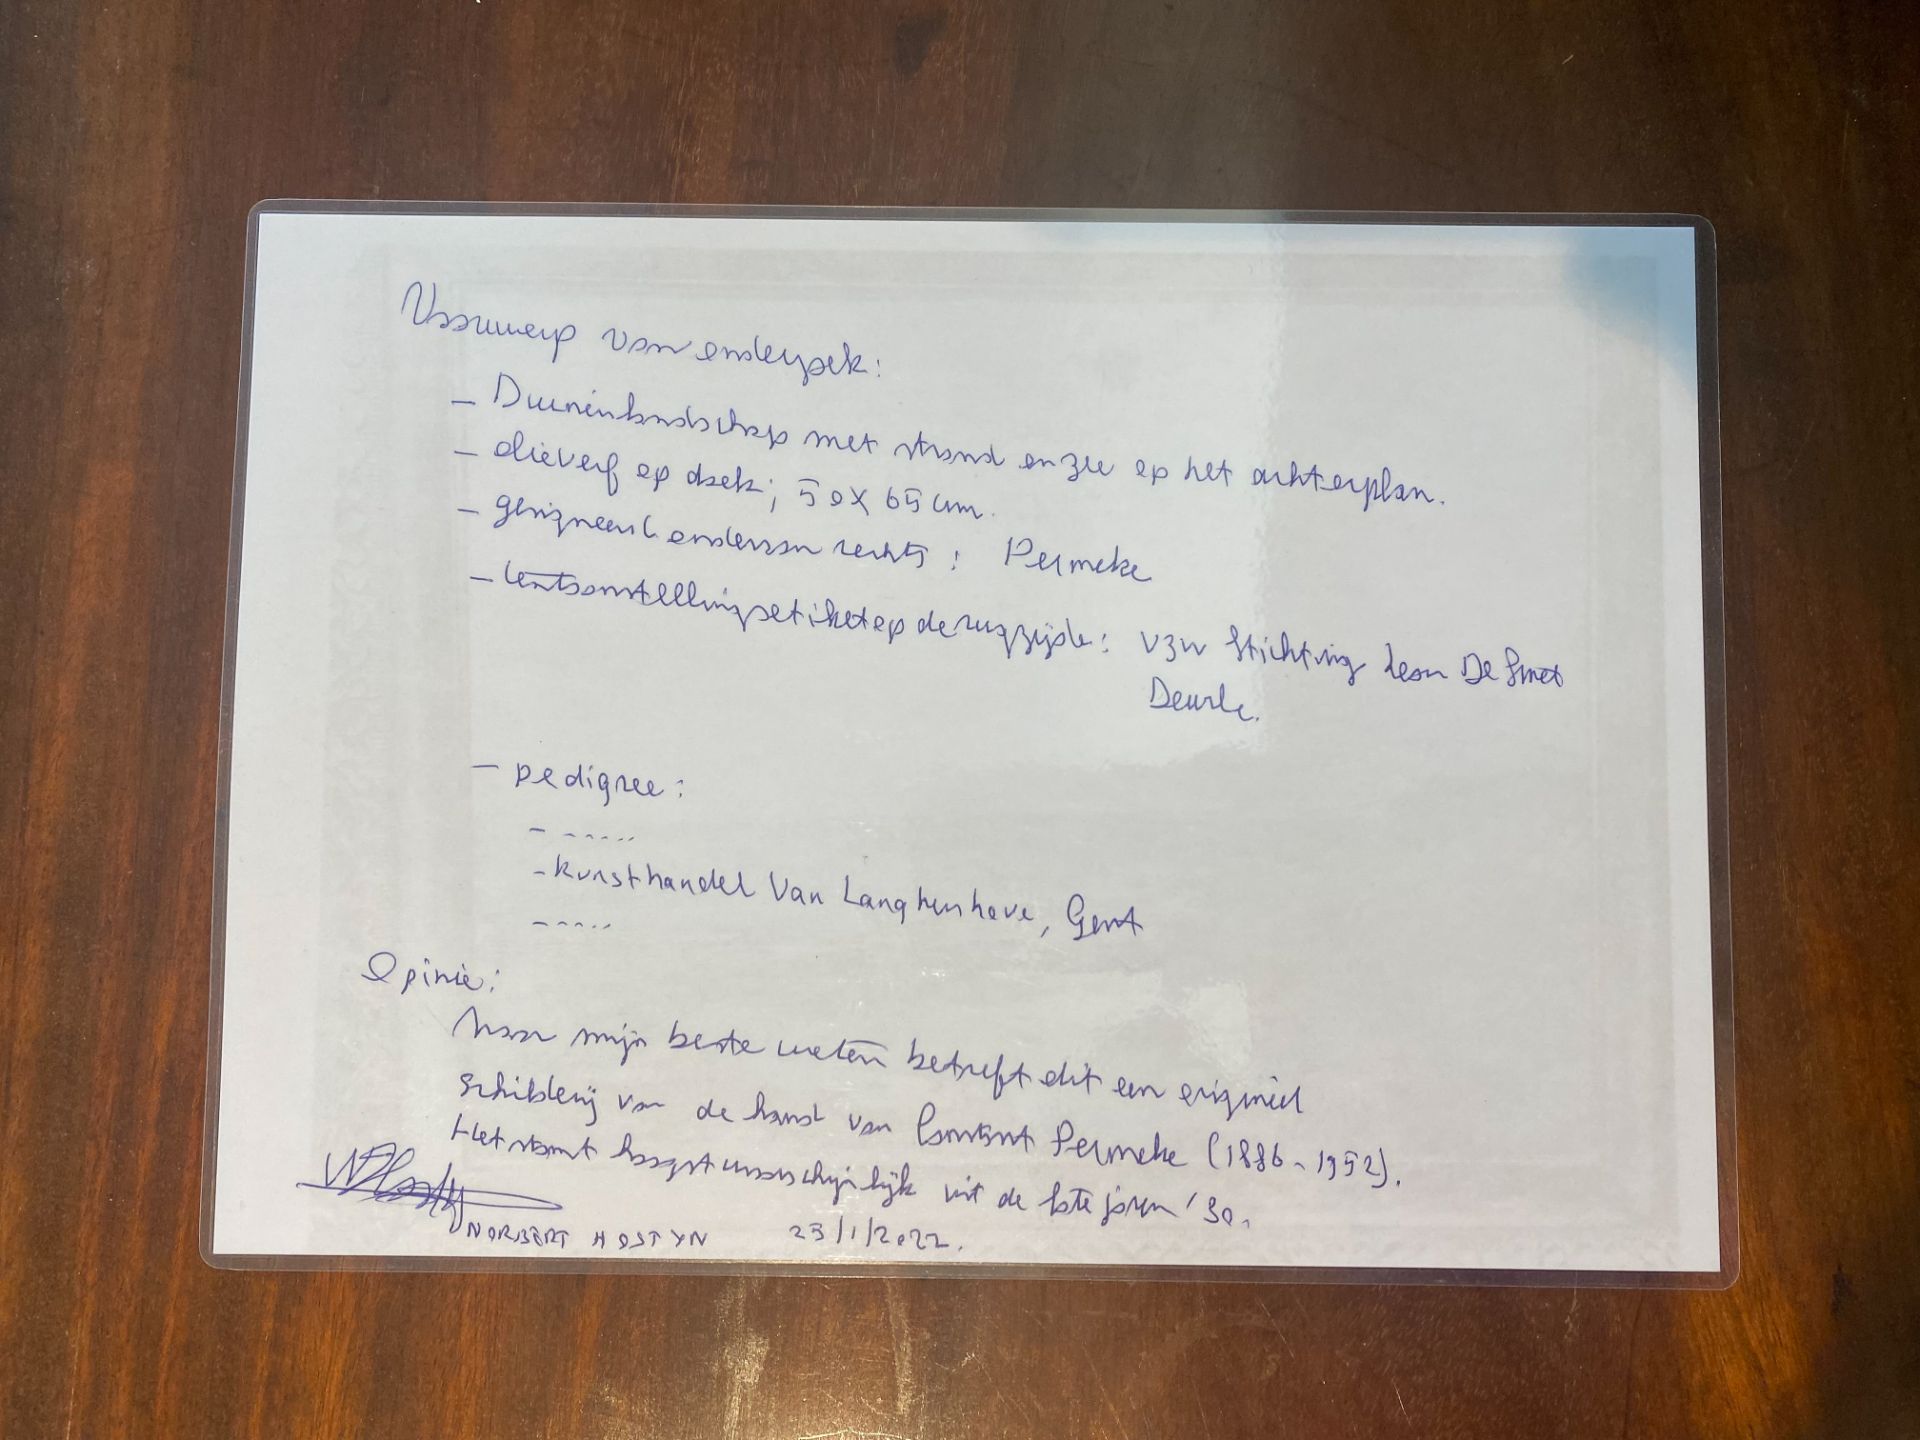 Voorwerp van onderzoek:
- Duinenlandschap met strand en zee op het achterplan.
- olieverf op doek; 50 x 65 cm.
- gesigneerd onderaan rechts: Permeke
- tentoonstellingsetiket op de rugzijde: vzw Stichting Leon De Smet
Deurle.
- pedigree:
- .....
- kunsthandel Van Langhenhove, Gent
- .....
Opinie:
Naar mijn beste weten betreft dit een origineel
schilderij van de hand van Constant Permeke (1886-1952).
Het stamt hoogstwaarschijnlijk uit de late jaren '30.
NORBERT HOSTYN 23/1/2022.